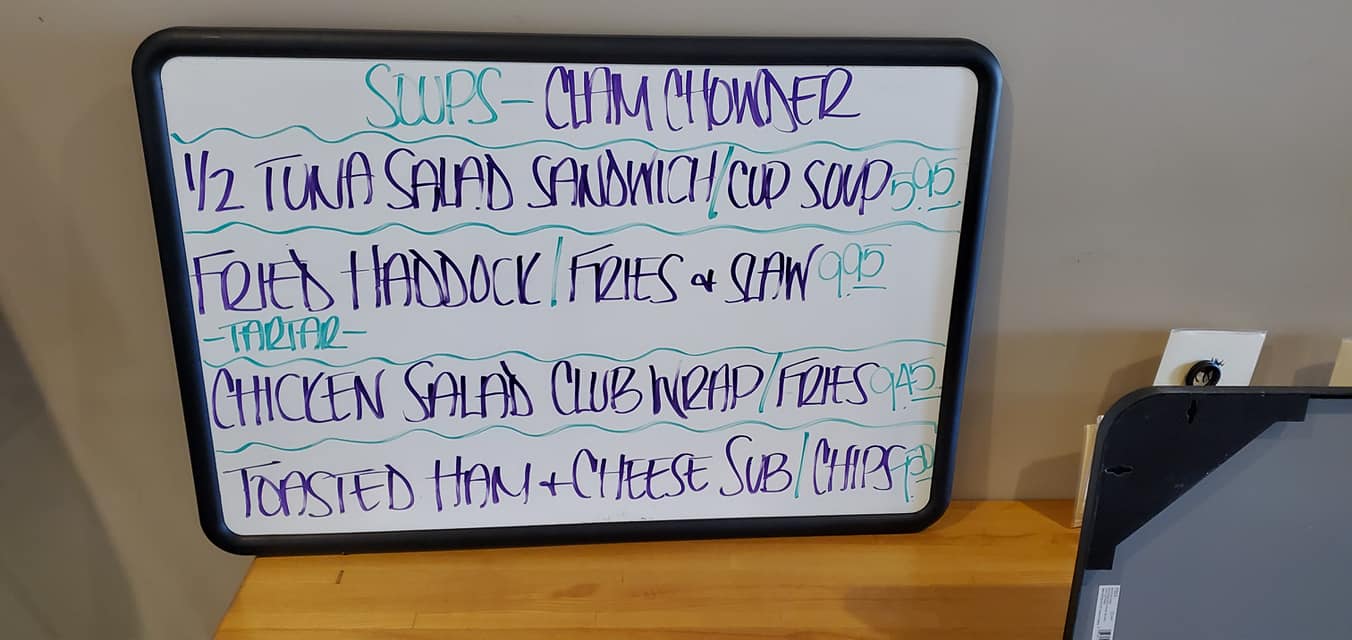 SOUPS - CLAM CHOWDER
1/2 TUNA SALAD SANDWICH/CUP SOUP 5.95
FRIED HADDOCK/FRIES & SLAW 9.95
-TARTAR-
CHICKEN SALAD CLUB WRAP/FRIES 9.45
TOASTED HAM + CHEESE SUB/CHIPS